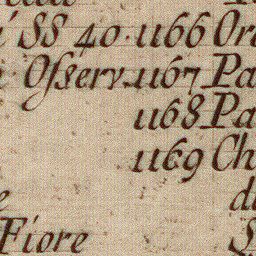 SS 40. 1166 Or
Osserv. 1167 Pa
1168 Pa
1169 Ch
di
Fiore